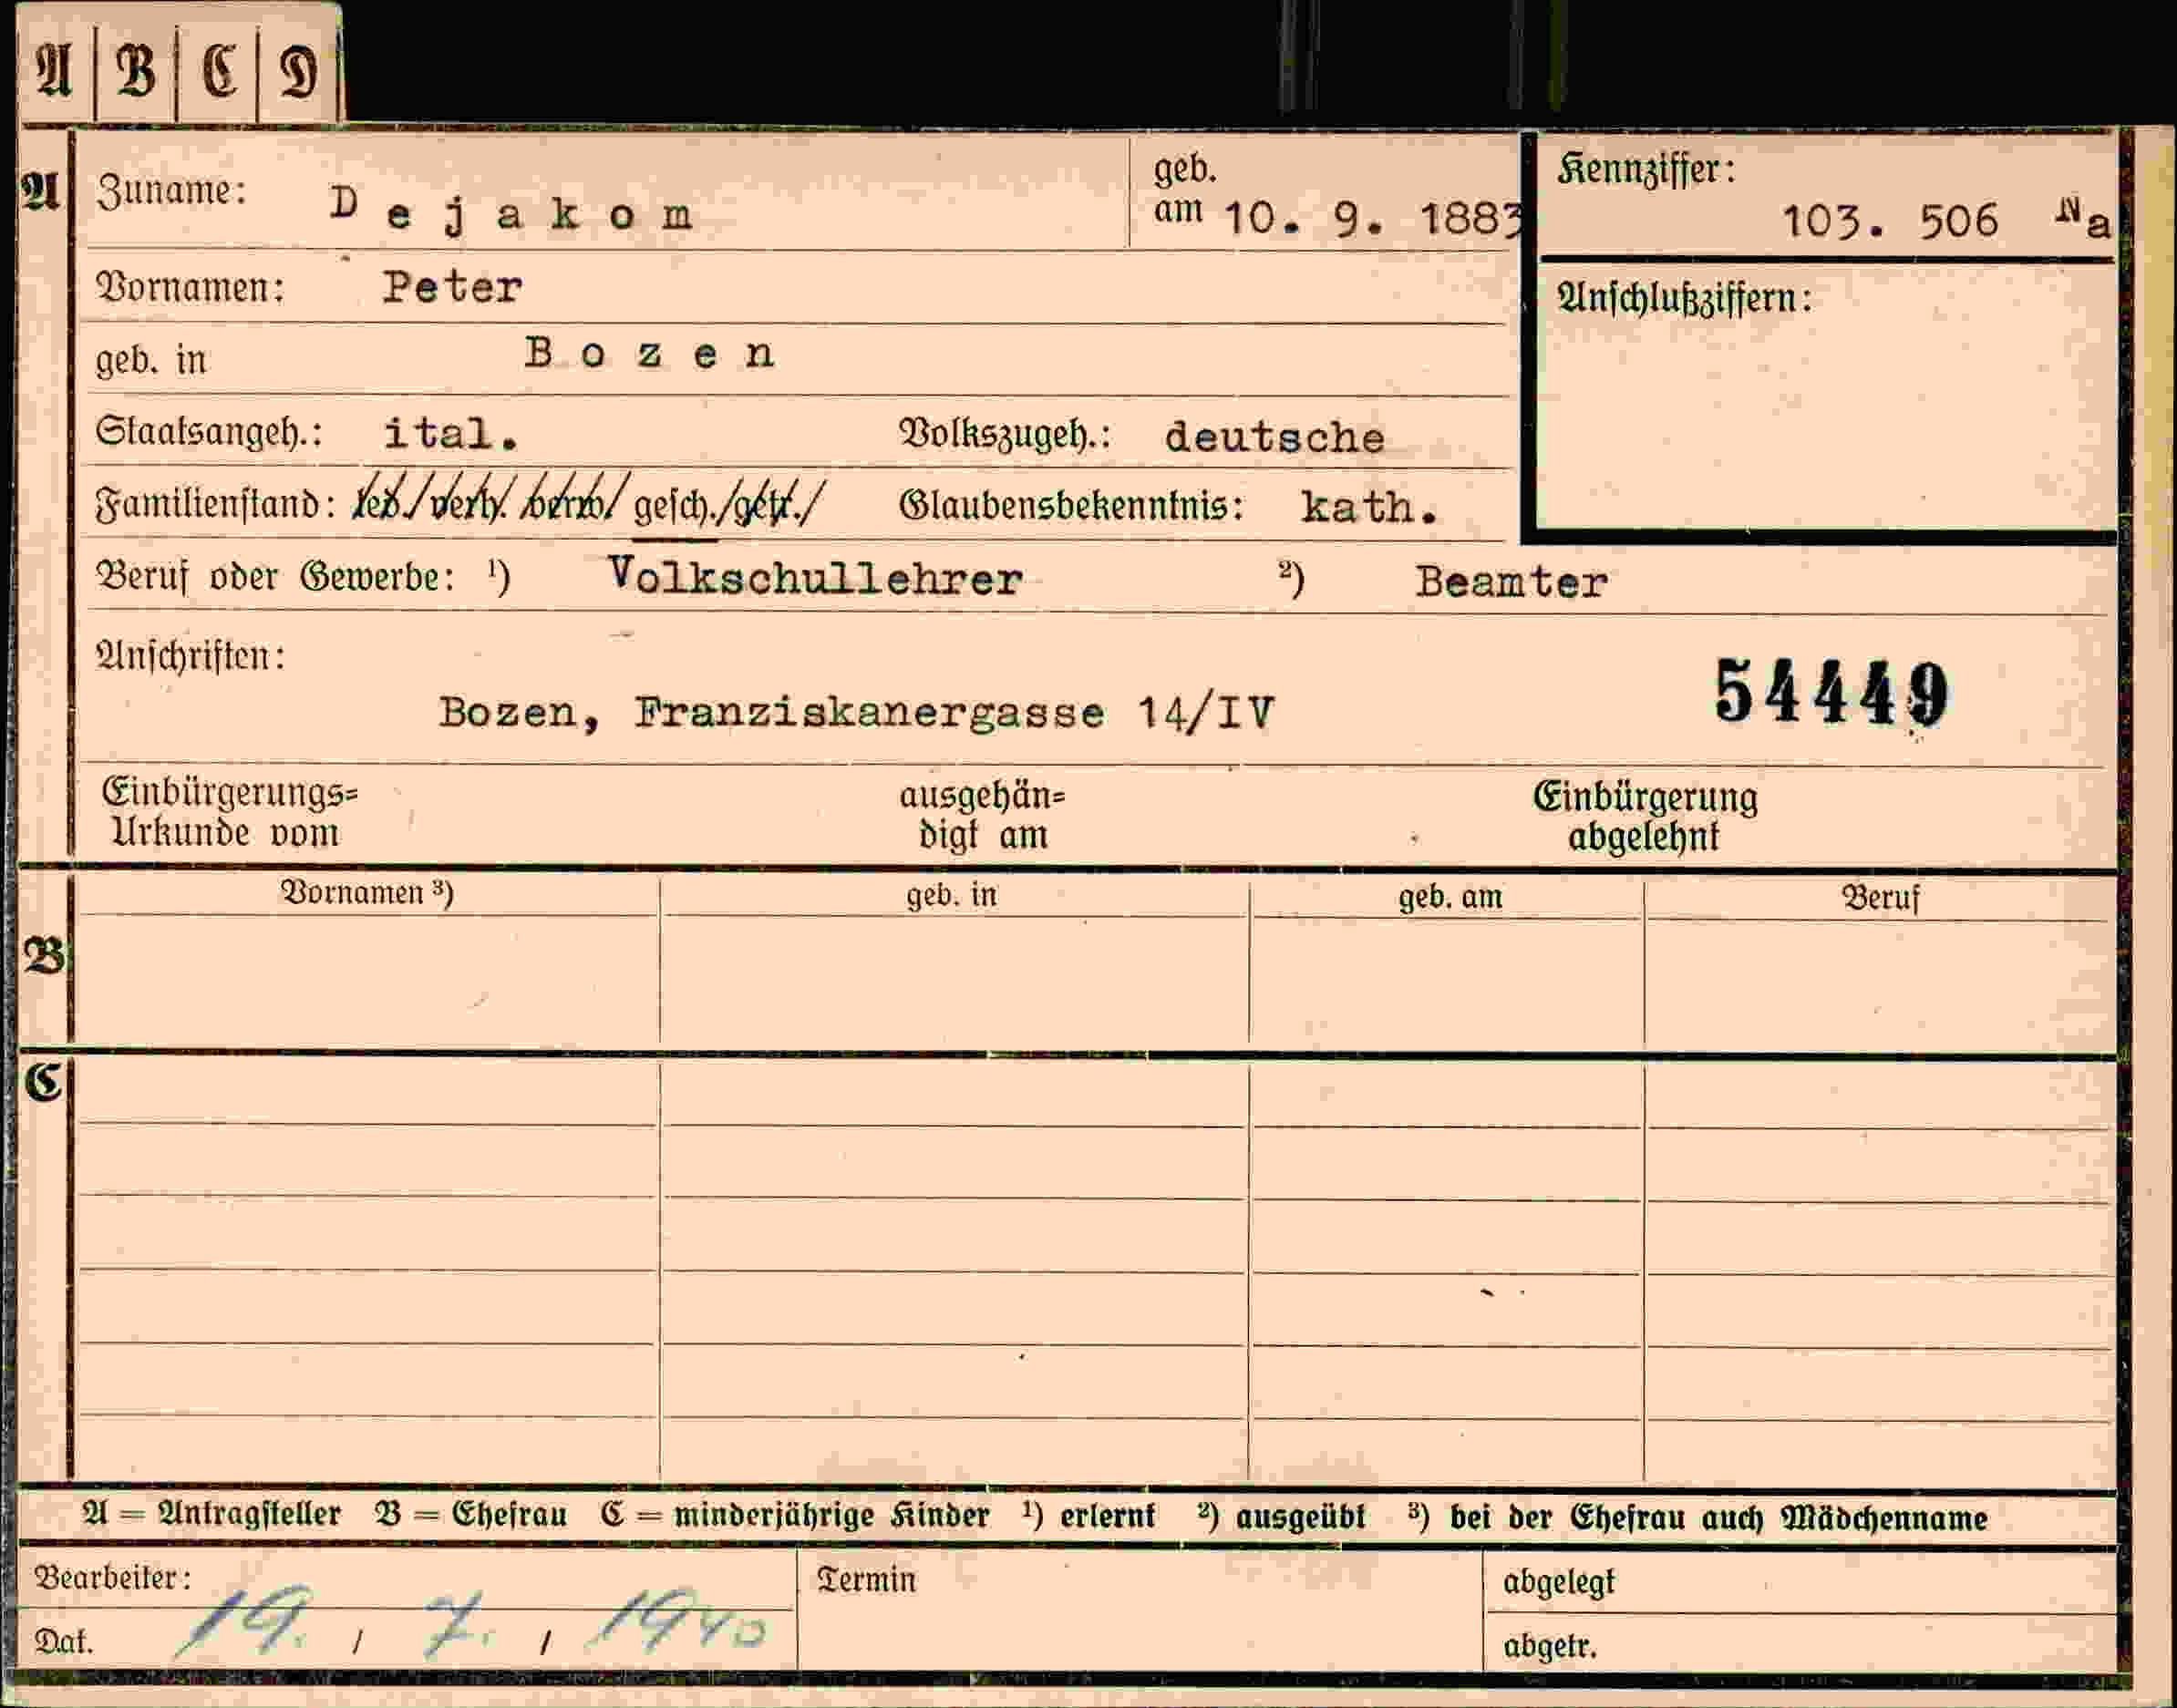 A | B | C | D
A Zuname: Dejakom geb. am 10. 9. 1883 Kennziffer: 103. 506 Na
Vornamen: Peter Anschlußziffern:
geb. in Bozen
Staatsangeh.: ital. Volkszugeh.: deutsche
Familienstand: led./verh./verw./gesch./getr./ Glaubensbekenntnis: kath.
Beruf oder Gewerbe: ¹) Volkschullehrer ²) Beamter
Anschriften:
Bozen, Franziskanergasse 14/IV 54449
Einbürgerungs= ausgehän= Einbürgerung
Urkunde vom digt am abgelehnt
Vornamen ³) geb. in geb. am Beruf
B
C
A = Antragsteller B = Ehefrau C = minderjährige Kinder ¹) erlernt ²) ausgeübt ³) bei der Ehefrau auch Mädchenname
Bearbeiter: Termin abgelegt
Dat. 19. / 7. / 1940 abgetr.